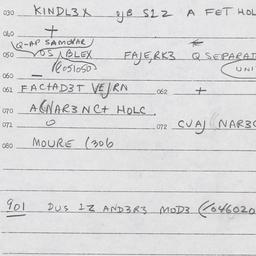 030 KINDL3X 5YB S1Z A FET HOL
040 +
Q-AP SAMOVAR
050 OS BLEX FAJERK3 Q SEPARAT
(R051050) UNI
060 —
061 FACTAD3T VEJRN 062 +
070 ACNAR3NCT HOLC
071 0 072 CVAJ NAR3C
080 MOURE (306
901 DUS 1Z AND3R3 MOD3 (1046020